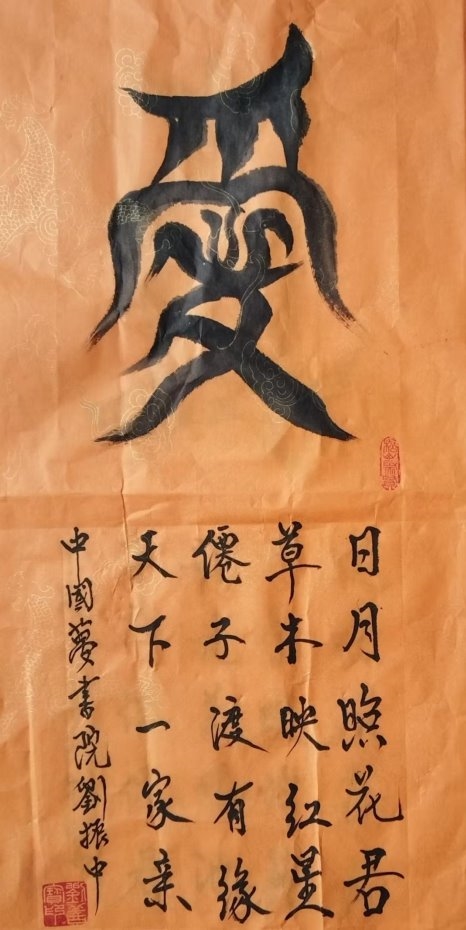 愛
日月照花君
草木映红星
僊子渡有缘
天下一家亲
中國夢书院劉振中